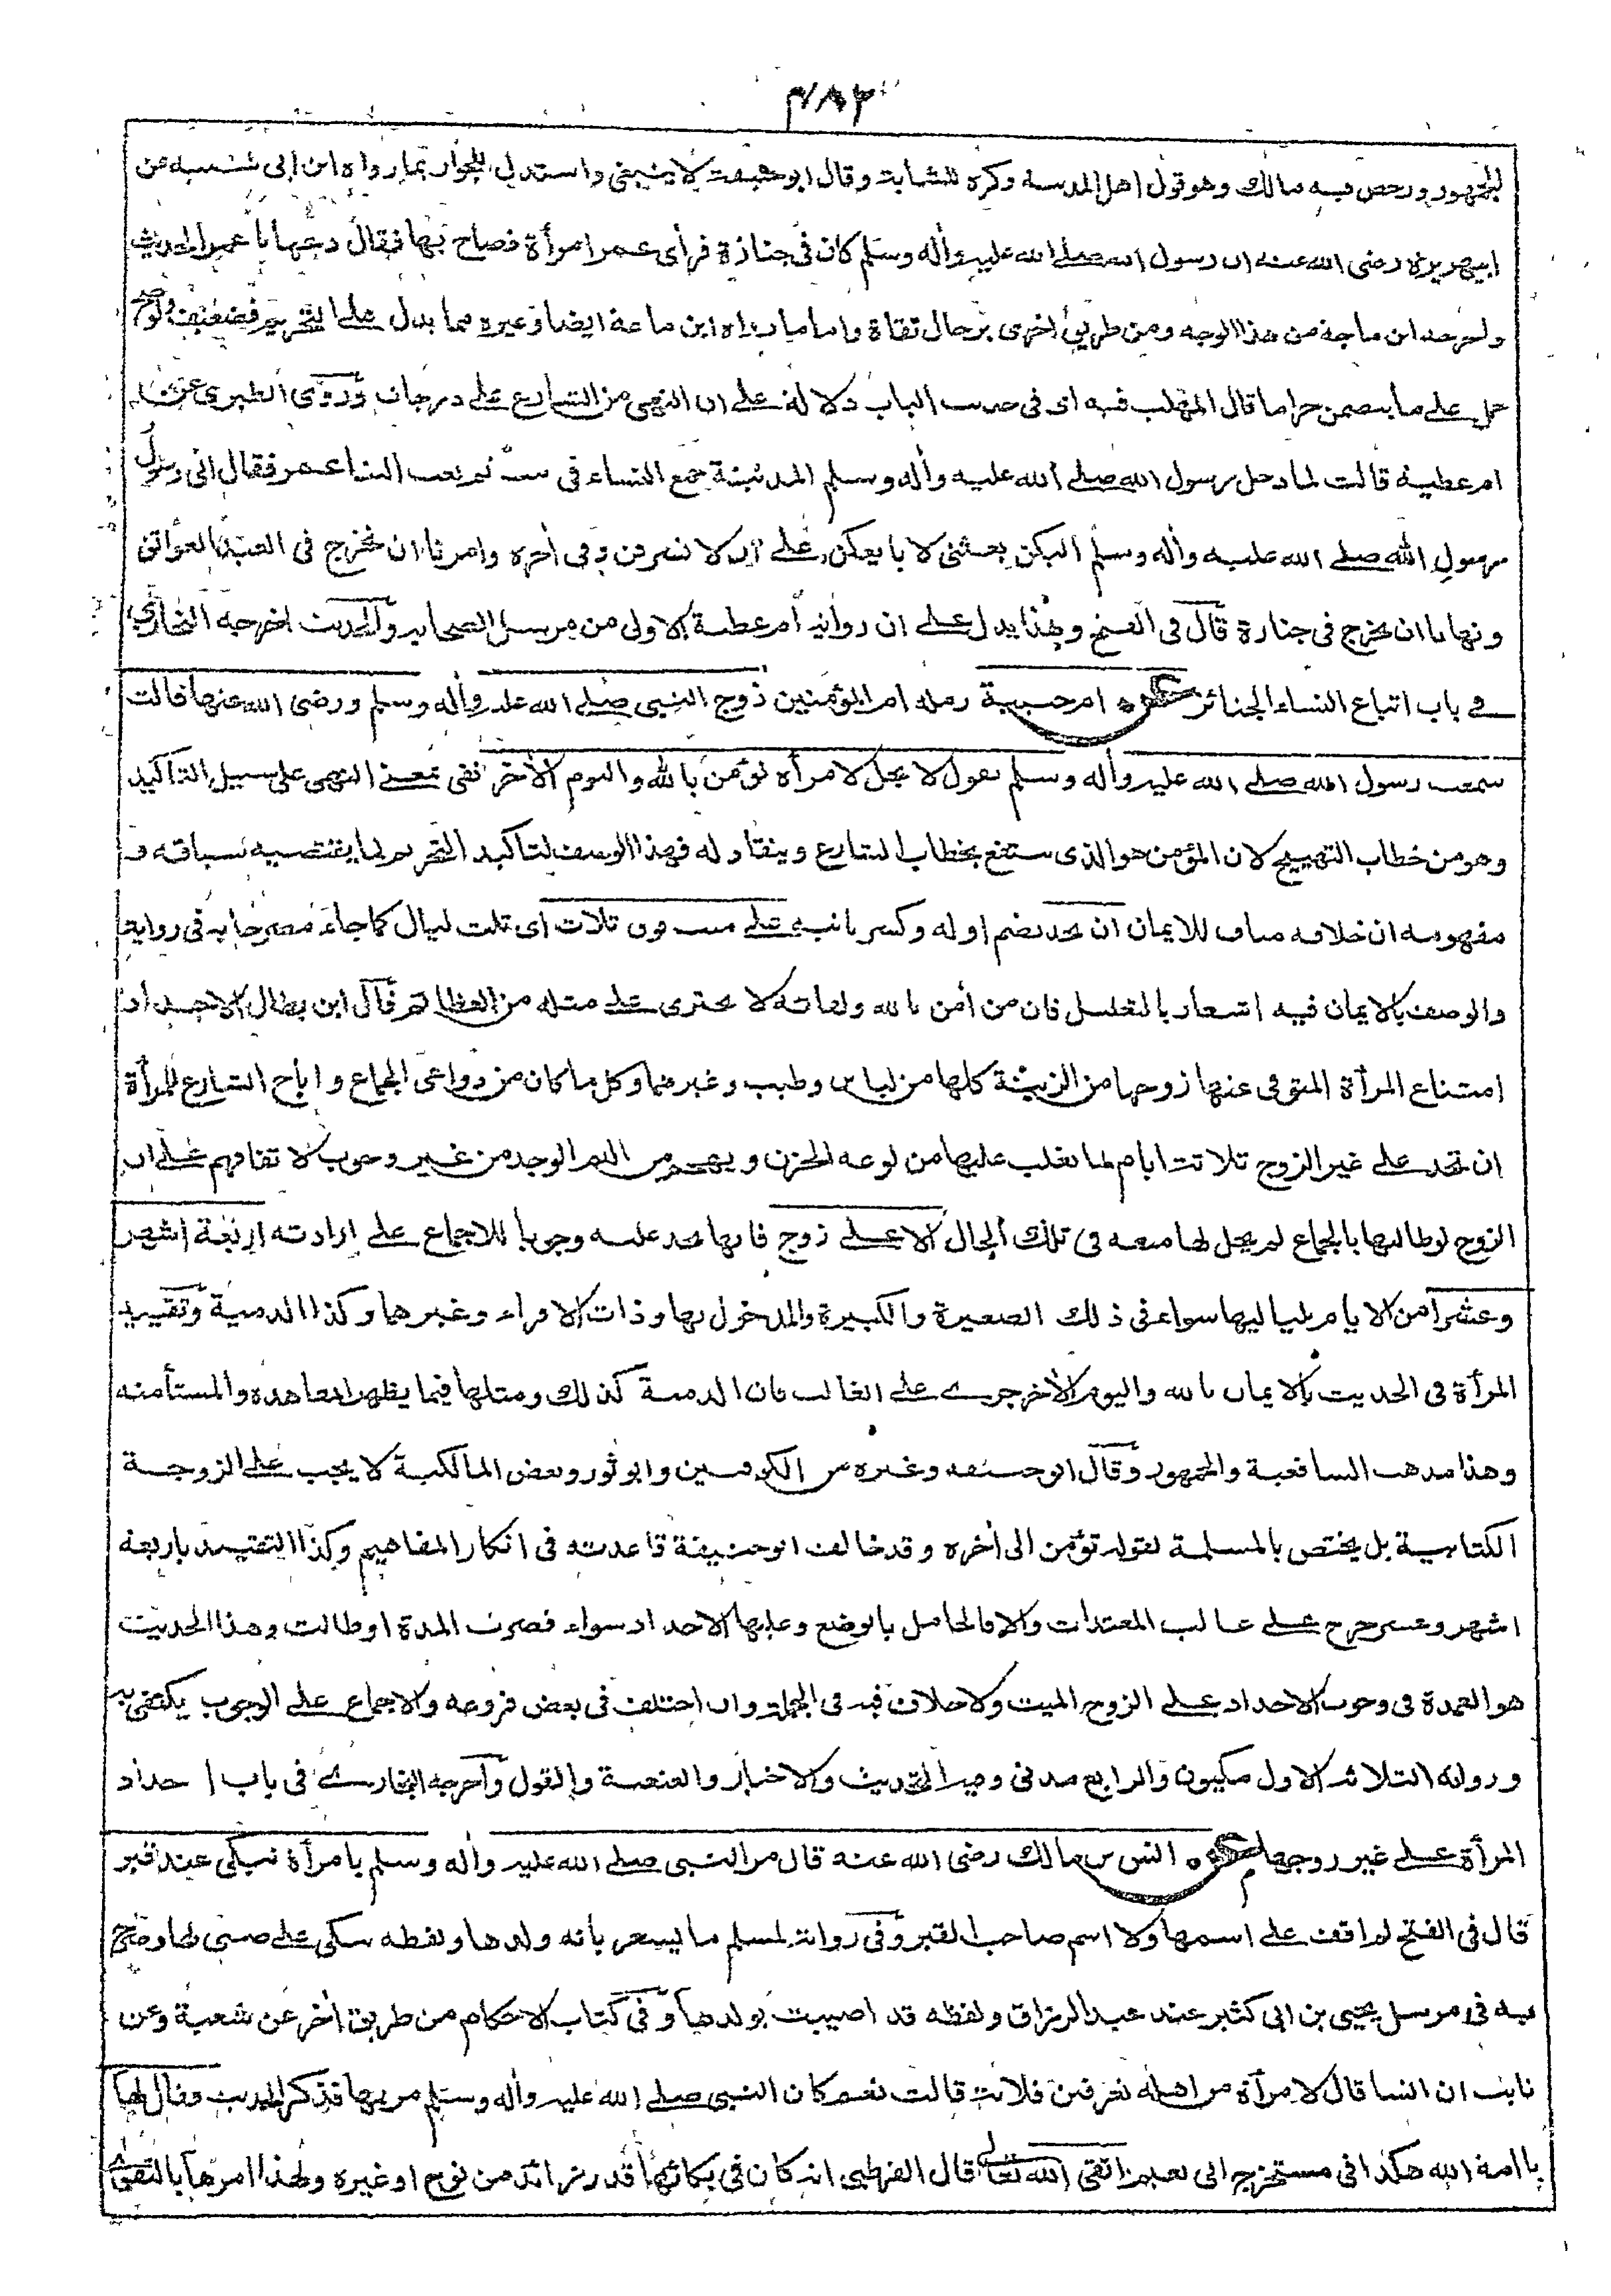 ٣٨٢
الجمهور ورخص فيه مالك وهو قول اهل المدينة وكره للشابة وقال ابو حنيفة لا ينبغى واستدل للجواز بما رواه ابن ابى شيبة عن
ابي هريرة رضى الله عنه ان رسول الله صلے الله عليه وأله وسلم كان فى جنازة فرأى عمر امرأة فصاح بها فقال دعها يا عمر الحديث
واخرجه ابن ماجة من هذا الوجه ومن طريق اخرى برجال ثقاة واما ما رواه ابن ماجة ايضا وغيره مما يدل علے التحريم فضعيف ولو صح
حمل علے ما يتضمن حراما قال المهلب فيه اى فى حديث الباب دلالة علے ان النهى من الشارع علے درجات وروى الطبرى عن
ام عطية قالت لما دخل رسول الله صلے الله عليه وأله وسلم المدينة جمع النساء فى بيت ثم بعث الينا عمر فقال انى رسول
رسول الله صلے الله عليه وأله وسلم اليكن بعثنى لابايعكن علے ان لا تسرقن وفى أخره وامرنا ان نخرج فى العيد العواتق
ونهانا ان نخرج فى جنازة قال فى الفتح وهذا يدل علے ان رواية ام عطية الاولى من مرسل الصحابة والحديث اخرجه البخارى
فے باب اتباع النساء الجنائز عن ام حبيبة رملة ام المؤمنين زوج النبى صلے الله عليه وأله وسلم ورضى الله عنها قالت
سمعت رسول الله صلے الله عليه وأله وسلم يقول لا يحل لامرأة تؤمن بالله واليوم الأخر نفى بمعنے النهى على سبيل التاكيد
وهو من خطاب التهييج لان المؤمن هو الذى ينتفع بخطاب الشارع وينقاد له فهذا الوصف لتاكيد التحريم لما يقتضيه سياقه و
مفهومه ان خلافه مناف للايمان ان تحد بضم اوله وكسر ثانيه علے ميت فوق ثلاث اى ثلث ليال كما جاء مصرحا به فى رواية
والوصف بالايمان فيه اشعار بالتعليل فان من أمن بالله ولقائه لا يجترى علے مثله من العظائم قال ابن بطال الاحداد
امتناع المرأة المتوفى عنها زوجها من الزينة كلها من لباس وطيب وغيرهما وكل ما كان من دواعى الجماع واباح الشارع للمرأة
ان تحد علے غير الزوج ثلاثة ايام لما يغلب عليها من لوعة الحزن ويهجم من اليم الوجد من غير وجوب لاتفاقهم علے ان
الزوج لو طالبها بالجماع لم يحل لها منعه فى تلك الحال الا علے زوج فانها تحد عليه وجوبا للاجماع علے ارادته اربعة اشهر
وعشرا من الايام بلياليها سواء فى ذلك الصغيرة والكبيرة والمدخول بها وذات الاقراء وغيرها وكذا الذمية وتقييد
المرأة فى الحديث بالايمان بالله واليوم الأخر جرے علے الغالب فان الذمية كذلك ومثلها فيما يظهر المعاهدة والمستأمنة
وهذا مذهب الشافعية والجمهور وقال ابو حنيفة وغيره من الكوفيين وابو ثور وبعض المالكية لا يجب علے الزوجة
الكتابية بل يختص بالمسلمة لقوله تؤمن الى أخره وقد خالف ابو حنيفة قاعدته فى انكار المفاهيم وكذا التقييد باربعة
اشهر وعشر خرج علے غالب المعتدات والا فالحامل بالوضع وعليها الاحداد سواء قصرت المدة او طالت وهذا الحديث
هو العمدة فى وجوب الاحداد علے الزوج الميت ولا خلاف فيه فى الجملة وان اختلف فى بعض فروعه والاجماع علے الوجوب يكتفى به
ورواته الثلاثة الاول مكيون والرابع مدنى وفيه التحديث والاخبار والعنعنة والقول واخرجه البخارے فى باب احداد
المرأة علے غير زوجها عن انس بن مالك رضى الله عنه قال مر النبى صلے الله عليه وأله وسلم بامرأة تبكى عند قبر
قال فى الفتح لم اقف علے اسمها ولا اسم صاحب القبر وفى رواية لمسلم ما يشعر بانه ولدها ولفظه تبكى علے صبى لها وصرح
به فى مرسل يحيى بن ابى كثير عند عبد الرزاق ولفظه قد اصيبت بولدها وفى كتاب الاحكام من طريق أخر عن شعبة وعن
ثابت ان انسا قال لامرأة من اهله تعرفين فلانة قالت نعم كان النبى صلے الله عليه وأله وسلم مر بها فذكر الحديث فقال لها
يا امة الله هكذا فى مستخرج ابى نعيم اتقى الله تعالے قال القرطبى انه كان فى بكائها قدر زائد من نوح او غيره ولهذا امرها بالتقوے